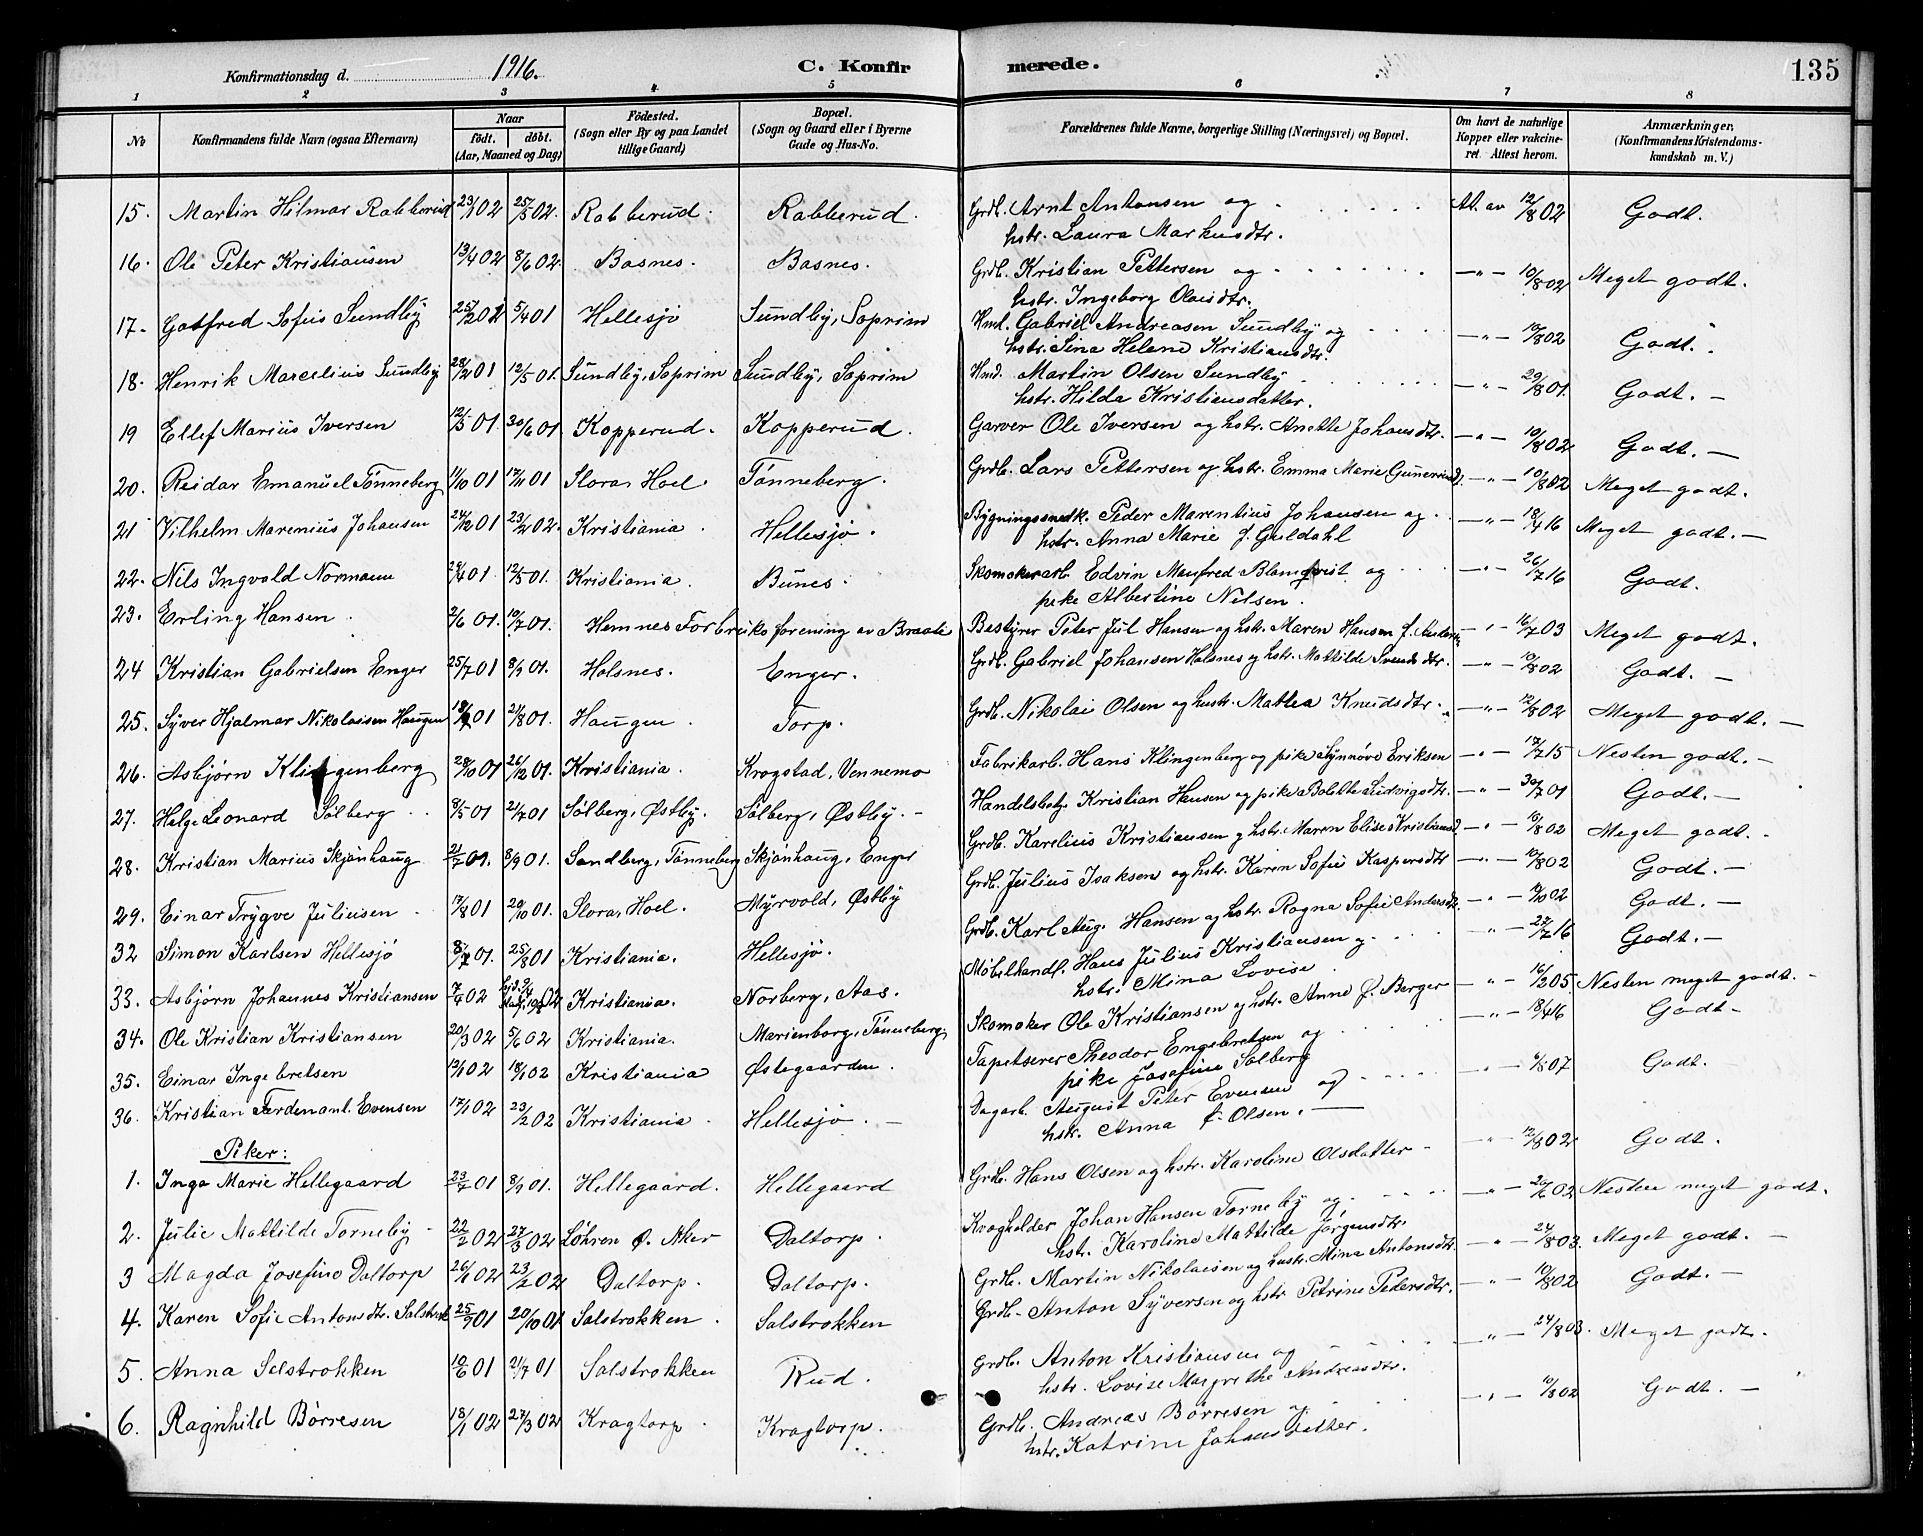 Konfirmationsdag d. 1916. C. Konfirmerede. 135
1 2 3 4 5 6 7 8
No Konfirmandens fulde Navn (ogsaa Efternavn) Naar født. døbt. (Aar, Maaned og Dag) Födested. (Sogn eller By og paa Landet tillige Gaard) Bopæl. (Sogn og Gaard eller i Byerne Gade og Hus-No. Forældrenes fulde Navne, borgerlige Stilling (Næringsvei) og Bopæl. Om havt de naturlige Kopper eller vakcineret. Attest herom. Anmærkninger. (Konfirmandens Kristendomskundskab m. V.)
15. Martin Hilmar Rabberud 02 25/5 02. Rabberud. Rabberud. Grdb. Arnt Antonsen og At. av 12/8 02 Godt.
hstr. Laura Markusdtr.
16. Ole Peter Kristiansen 13/4 02 8/6 02. Basnes. Basnes. Grdb. Kristian Pettersen og -"- 10/8 02 Meget godt.
hstr. Ingeborg Olausdtr.
17. Gotfred Sofus Sundby 25/2 02 5/4 01 Hellesjø Sundby, Soprim Hmd. Gabriel Andreasen Sundby og -"- 10/8 02 Godt.
hstr. Sina Helene Kristiansdtr.
18. Henrik Marcelius Sundby 28/2 01 12/5 01. Sundby, Soprim Sundby, Soprim Hmd. Martin Olsen Sundby -"- 29/8 01. Godt. -
hstr. Hilda Kristiansdatter.
19 Ellef Marius Iversen 12/5 01. 30/6 01 Kopperud. Kopperud. Garver Ole Iversen og hstr. Anette Johansdtr. -"- 10/8 02 Godt. -
20. Reidar Emanuel Tønneberg 11/10 01 17/11 01 Slora, Hoel. Tønneberg. Grdb. Lars Pettersen og hstr. Emma Marie -"- 10/8 02 Meget godt.
21 Vilhelm Marenius Johansen 24/12 01 23/2 02. Kristiania. Hellesjø. Bygningssnedk. Peder Marentius Johansen og -"- 18/4 16 Meget godt. -
hstr. Anna Marie f. Guldahl
22. Nils Ingvald Normann 29/4 01. 12/5 01. Kristiania. Bunes. Skomakerarb. Edvin Manfred Blomqvist og -"- 26/7 16 Godt.
pike Albertine Nilsen.
23. Erling Hansen 2/6 01. 10/7 01. Hemnes Forbruksforening av Braate Bestyrer Peter Jul Hansen og hstr. Maren Hansen f. -"- 16/7 03 Meget godt.
24 Kristian Gabrielsen Enger 25/7 01 8/9 01. Holsnes. Enger. Grdb. Gabriel Johansen Holsnes og hstr. Mathilde Svendsdtr. -"- 10/8 02 Godt. -
25. Syver Hjalmar Nikolaisen Haugen 01 21/8 01. Haugen. Torp. Grdb. Nikolai Olsen og hustr. Mathea Knudsdtr. -"- 12/8 02 Meget godt. -
26. Asbjørn Klingenberg 28/10 01 26/12 01. Kristiania. Krogstad, Vennemo Fabrikarb. Hans Klingenberg og pike Synnøve Eriksen -"- 17/7 15 Nesten godt. -
27. Helge Leonard Sølberg 8/5 01 21/7 01 Sølberg, Østby. Sølberg, Østby. - Handelsbetj. Kristian Hansen og pike Bolette Ludvigsdtr. -"- 30/7 01 Godt. -
28. Kristian Marius Skjønhaug 21/7 01. 8/9 01. Sandberg, Tønneberg Skjønhaug, Enger Grdb. Karelius Kristiansen og hstr. Maren Elise Kristiansd. -"- 10/8 02 Meget godt. -
29. Einar Trygve Juliusen 17/8 01 20/10 01. Slora, Hoel. Myrvold, Østby Grdb. Julius Isaksen og hstr. Karen Sofie Kaspersdtr -"- 10/8 02 Godt. -
32 Simon Karlsen Hellesjø 01. 25/8 01 Kristiania. Hellesjø. Grdb. Karl Aug. Hansen og hstr. Ragna Sofie Andersdtr. -"- 02 Godt. -
33. Asbjørn Johannes Kristiansen 7/4 02 Kristiania. Norberg, Aas. Møbelhandl. Hans Julius Kristiansen og -"- 27/7 16 Godt. -
hstr. Mina Lovise.
34. Ole Kristian Kristiansen 20/3 02 5/6 02 Kristiania. Marienborg, Tønneberg. Skomaker Ole Kristiansen og hstr. Anne f. Berger -"- 16/2 05. Nesten meget godt. -
35. Einar Ingebretsen 02 18/1 02 Kristiania Østegaarden. Tapetserer Theodor Engebretsen og -"- 18/4 16 Godt -
pike Josefine Solberg
36. Kristian Ferdenant. Evensen 17/1 02 23/2 02 Kristiania. Hellesjø. - Dagarb. August Peter Evensen og -"- 07 Godt.
hstr. Anna f. Olsen. -
Piker:
1. Inga Marie Hellegaard 23/7 01 8/9 01. Hellegaard. Hellegaard Grdb. Hans Olsen og hstr. Karoline Olsdatter - -"- 12/8 02 Godt.
2. Julie Mathilde Torneby 22/2 02 27/3 02 Løhren Ø. Aker Daltorp. Kvægholder Johan Hansen Torneby og -"- 02 Nesten meget godt.
hstr. Karoline Mathilde Jørgensdtr.
3 Magda Josefine Daltorp 26/1 02 23/2 02 Daltorp. Daltorp. Grdb. Martin Nikolaisen og hustr. Mina Antonsdtr. -"- 24/8 03. Meget godt. -
4. Karen Sofie Antonsdtr. 25/9 01 20/10 01 Salstrokken. Salstrokken Grdb. Anton Syversen og hstr Petrine Pedersdtr. -"- 10/8 02 Godt. -
5. Anna Selstrokken 10/6 01 21/7 01 Salstrokken Rud. Grdb. Anton Kristiansen og -"- 24/8 03. Meget godt.
hstr. Lovise Margrethe Andreasdtr.
6. Ragnhild Børresen 18/1 02 27/3 02 Kragtorp. Kragtorp. Grdb. Andreas Børresen og -"- 10/8 02 Godt. -
hstr. Katrine Johansdatter.